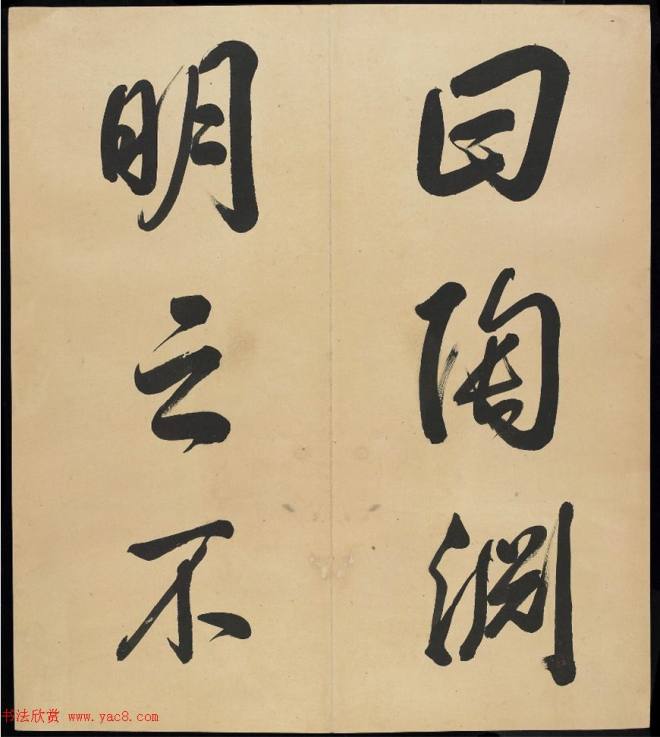 曰陶渊
明之不
书法欣赏 www.yac8.com